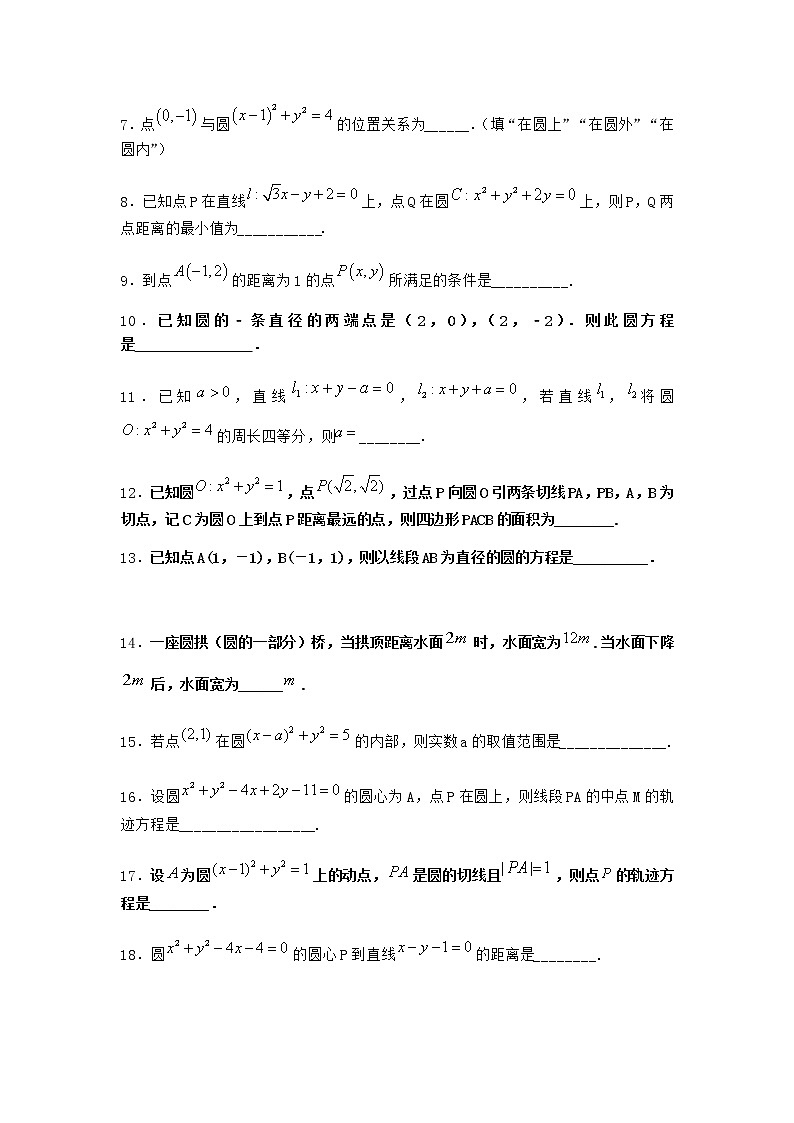 7.点(0,−1)与圆(x−1)²+y²=4的位置关系为______.(填“在圆上”“在圆外”“在
圆内”)
8.已知点P在直线l:√3x−y+2=0上,点Q在圆C:x²+y²+2y=0上,则P,Q两
点距离的最小值为___________.
9.到点A(−1,2)的距离为1的点P(x,y)所满足的条件是__________.
10.已知圆的-条直径的两端点是(2,0),(2,-2).则此圆方程
是_______________.
11.已知a>0,直线l₁:x+y−a=0,l₂:x+y+a=0,若直线l₁,l₂将圆
O:x²+y²=4的周长四等分,则a=________.
12.已知圆O:x²+y²=1,点P(√2,√2),过点P向圆O引两条切线PA,PB,A,B为
切点,记C为圆O上到点P距离最远的点,则四边形PACB的面积为________.
13.已知点A(1,-1),B(-1,1),则以线段AB为直径的圆的方程是__________.
14.一座圆拱(圆的一部分)桥,当拱顶距离水面2m时,水面宽为12m.当水面下降
2m后,水面宽为______m.
15.若点(2,1)在圆(x−a)²+y²=5的内部,则实数a的取值范围是______________.
16.设圆x²+y²−4x+2y−11=0的圆心为A,点P在圆上,则线段PA的中点M的轨
迹方程是__________________.
17.设A为圆(x−1)²+y²=1上的动点,PA是圆的切线且|PA|=1,则点P的轨迹方
程是________.
18.圆x²+y²−4x−4=0的圆心P到直线x−y−1=0的距离是________.